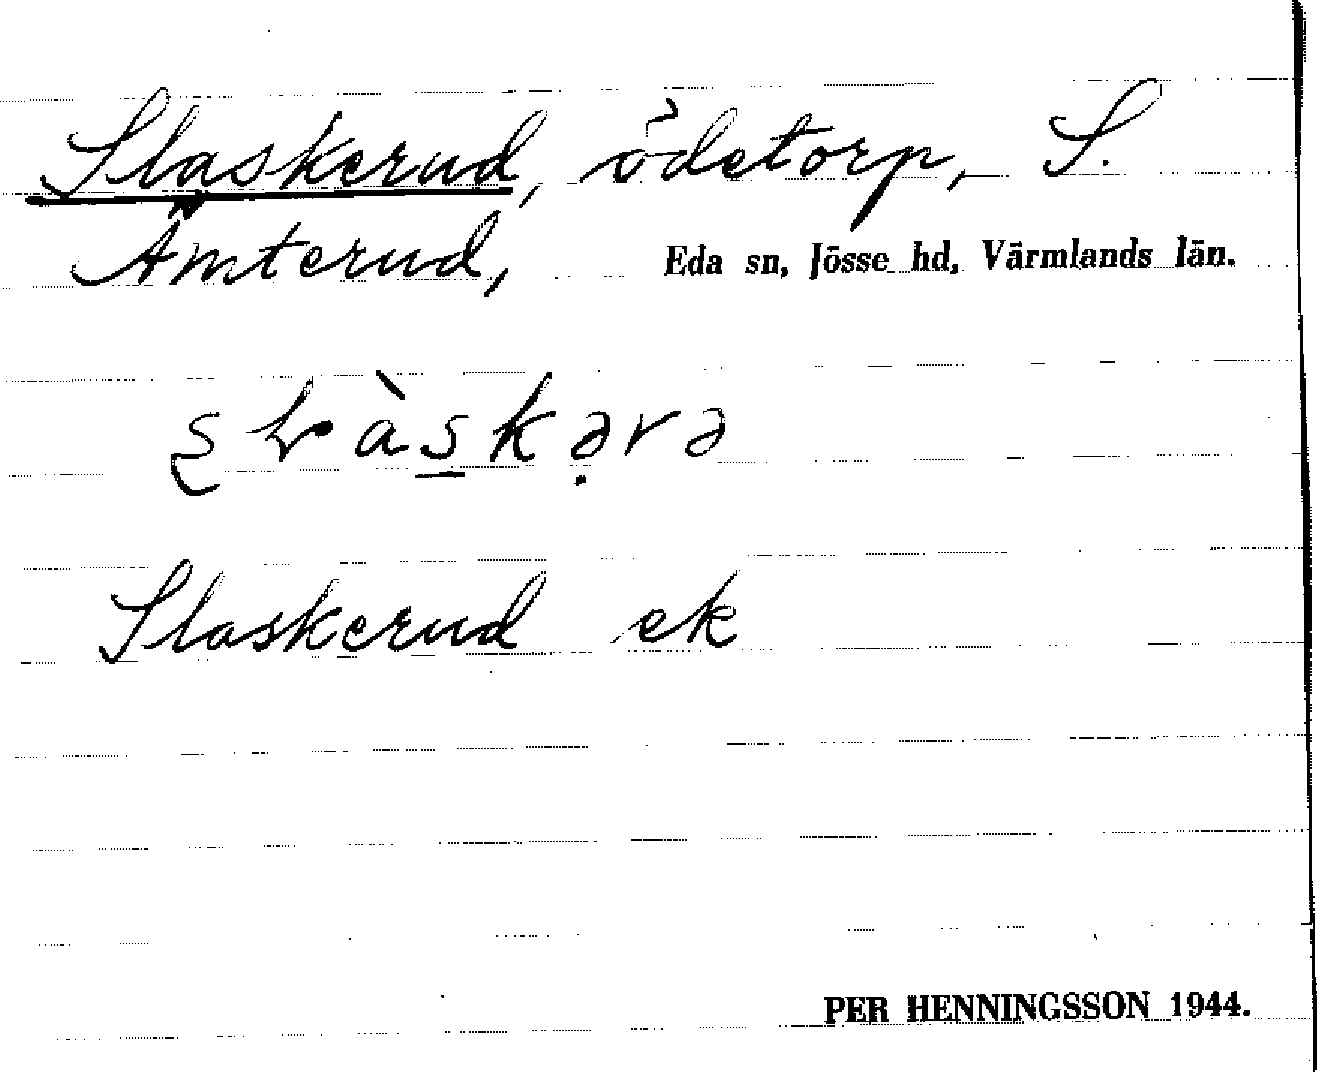 Slaskerud, ödetorp, S.
Ämterud, Eda sn, Jösse hd, Värmlands län.
Slaskerud ek
PER HENNINGSSON 1944.